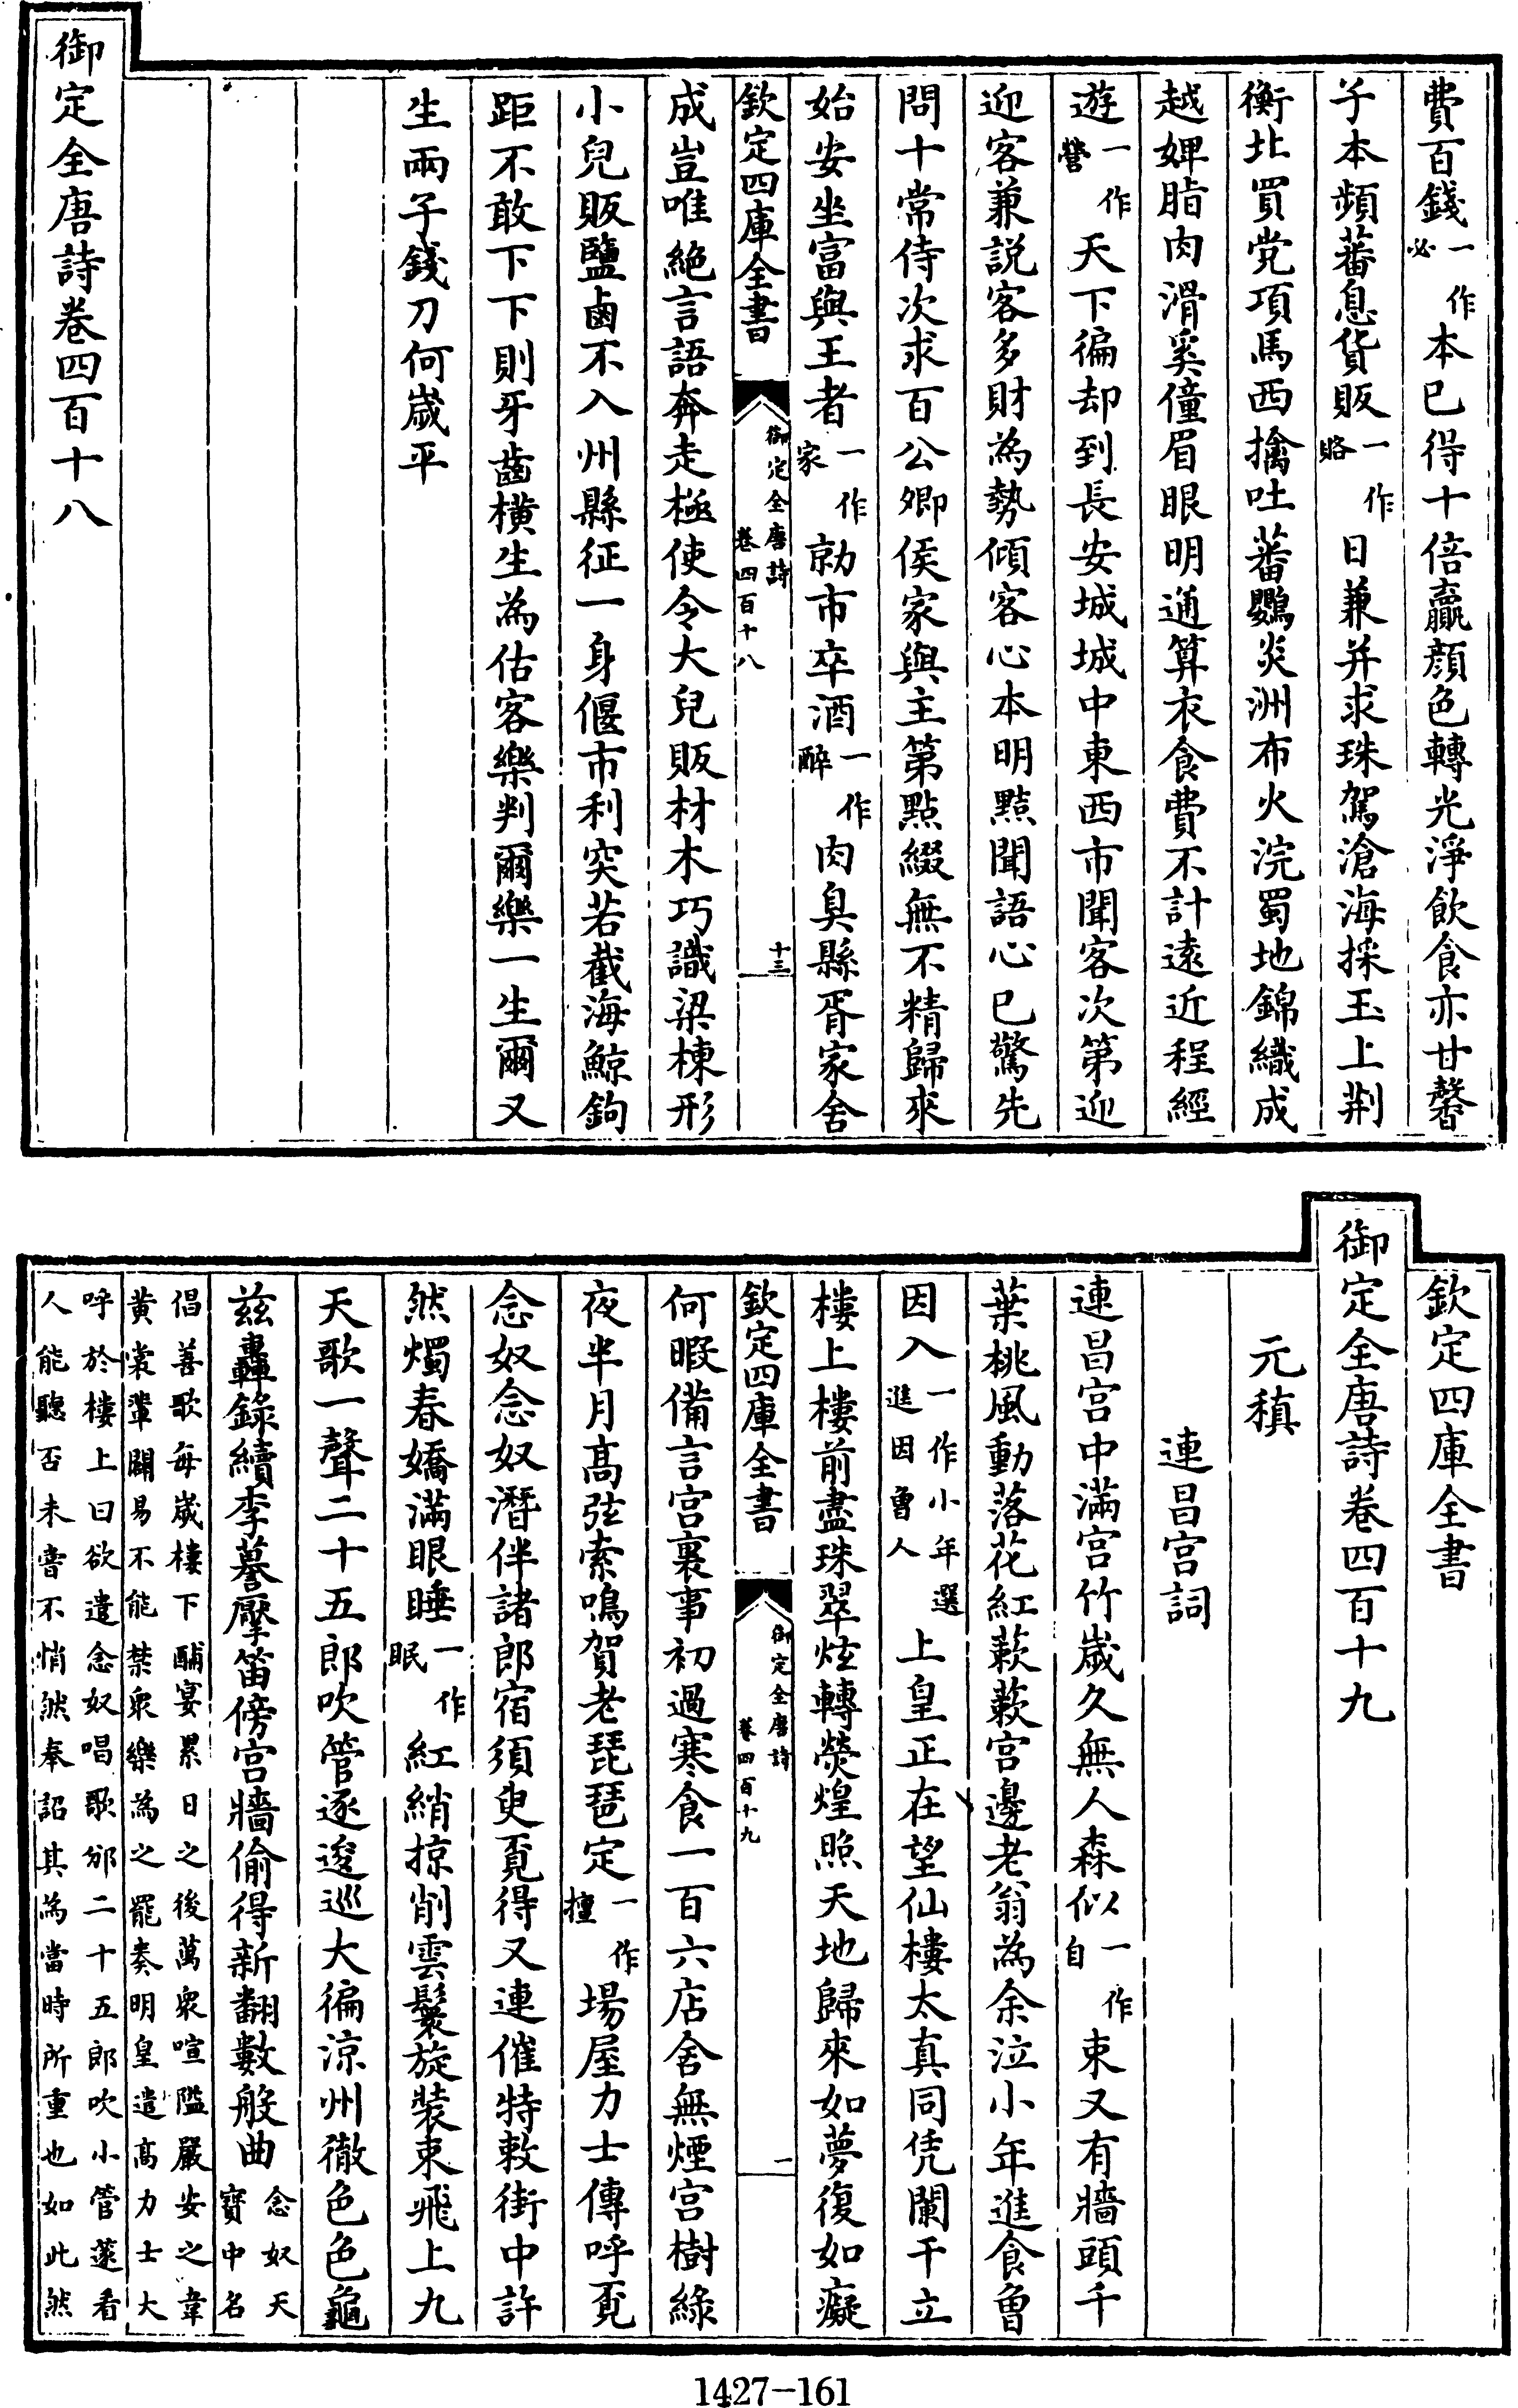 費百錢一作必本已得十倍贏顔色轉光淨飲食亦甘馨
子本頻蕃息貨販一作賂日兼并求珠駕滄海採玉上荆
衡北買党項馬西擒吐蕃鸚炎洲布火浣蜀地錦織成
越婢脂肉滑奚僮眉眼明通算衣食費不計遠近程經
遊一作營天下徧却到長安城城中東西市聞客次第迎
迎客兼説客多財為勢傾客心本明黠聞語心已驚先
問十常侍次求百公卿侯家與主第點綴無不精歸來
始安坐富與王者一作家勍市卒酒一作醉肉臭縣胥家舍
欽定四庫全書
御定全唐詩
卷四百十八
十三
成豈唯絶言語奔走極使令大兒販材木巧識梁棟形
小兒販鹽鹵不入州縣征一身偃市利突若截海鯨鉤
距不敢下下則牙齒橫生為估客樂判爾樂一生爾又
生兩子錢刀何歲平
御定全唐詩卷四百十八
欽定四庫全書
御定全唐詩卷四百十九
元稹
連昌宫詞
連昌宫中滿宫竹歲久無人森似一作自束又有牆頭千
葉桃風動落花紅蔌蔌宫邊老翁為余泣小年進食曾
因入一作小年選進因曾人上皇正在望仙樓太真同凭闌干立
樓上樓前盡珠翠炫轉熒煌照天地歸來如夢復如癡
欽定四庫全書
御定全唐詩
卷四百十九
一
何暇備言宫裏事初過寒食一百六店舍無煙宫樹緑
夜半月髙弦索鳴賀老琵琶定一作擅場屋力士傳呼覓
念奴念奴潛伴諸郎宿須臾覓得又連催特敕街中許
然燭春嬌滿眼睡一作眠紅綃掠削雲鬟旋裝束飛上九
天歌一聲二十五郎吹管逐逡巡大徧涼州徹色色龜
兹轟錄續李謩擪笛傍宫牆偷得新翻數般曲念奴天寶中名
倡善歌每歲樓下酺宴累日之後萬衆喧隘嚴安之韋
黄裳輩闢易不能禁衆樂為之罷奏明皇遣髙力士大
呼於樓上曰欲遣念奴唱歌邠二十五郎吹小管逐看
人能聽否未嘗不悄然奉詔其為當時所重也如此然
1427-161